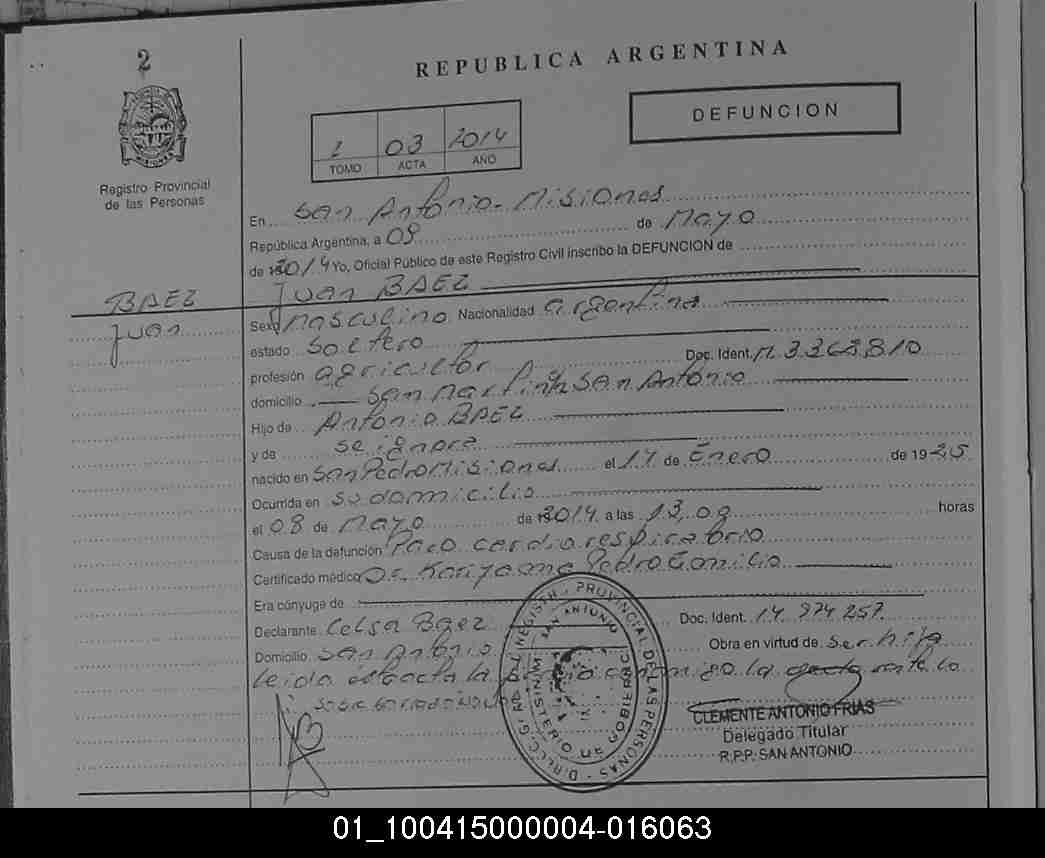 2
REPUBLICA ARGENTINA
DEFUNCION
1 03 2014
TOMO ACTA AÑO
Registro Provincial
de las Personas
En San Antonio - Misiones
República Argentina, a 09 de Mayo
de 2014 Yo, Oficial Público de este Registro Civil inscribo la DEFUNCION de
Juan BAEZ
BAEZ
Juan
Sexo masculino Nacionalidad argentina
estado Soltero
profesión agricultor Doc. Ident. M. 3.368.810
domicilio San Martin San Antonio
Hijo de Antonio BAEZ
y de se ignora
nacido en San Pedro Misiones el 17 de Enero de 1925
Ocurrida en su domicilio
el 08 de Mayo de 2014 a las 13,00 horas
Causa de la defunción Paro cardiorespiratorio
Certificado médico Dr. Kariyama Pedro
Era cónyuge de
Declarante Celsa Baez Doc. Ident. 14.974.257
Domicilio San Antonio Obra en virtud de Ser hija
Leida el acta la conmigo la
CLEMENTE ANTONIO FRIAS
Delegado Titular
R.P.P. SAN ANTONIO
REGISTRO PROVINCIAL DE LAS PERSONAS
SAN ANTONIO
MINISTERIO DE GOBIERNO
01_100415000004-016063